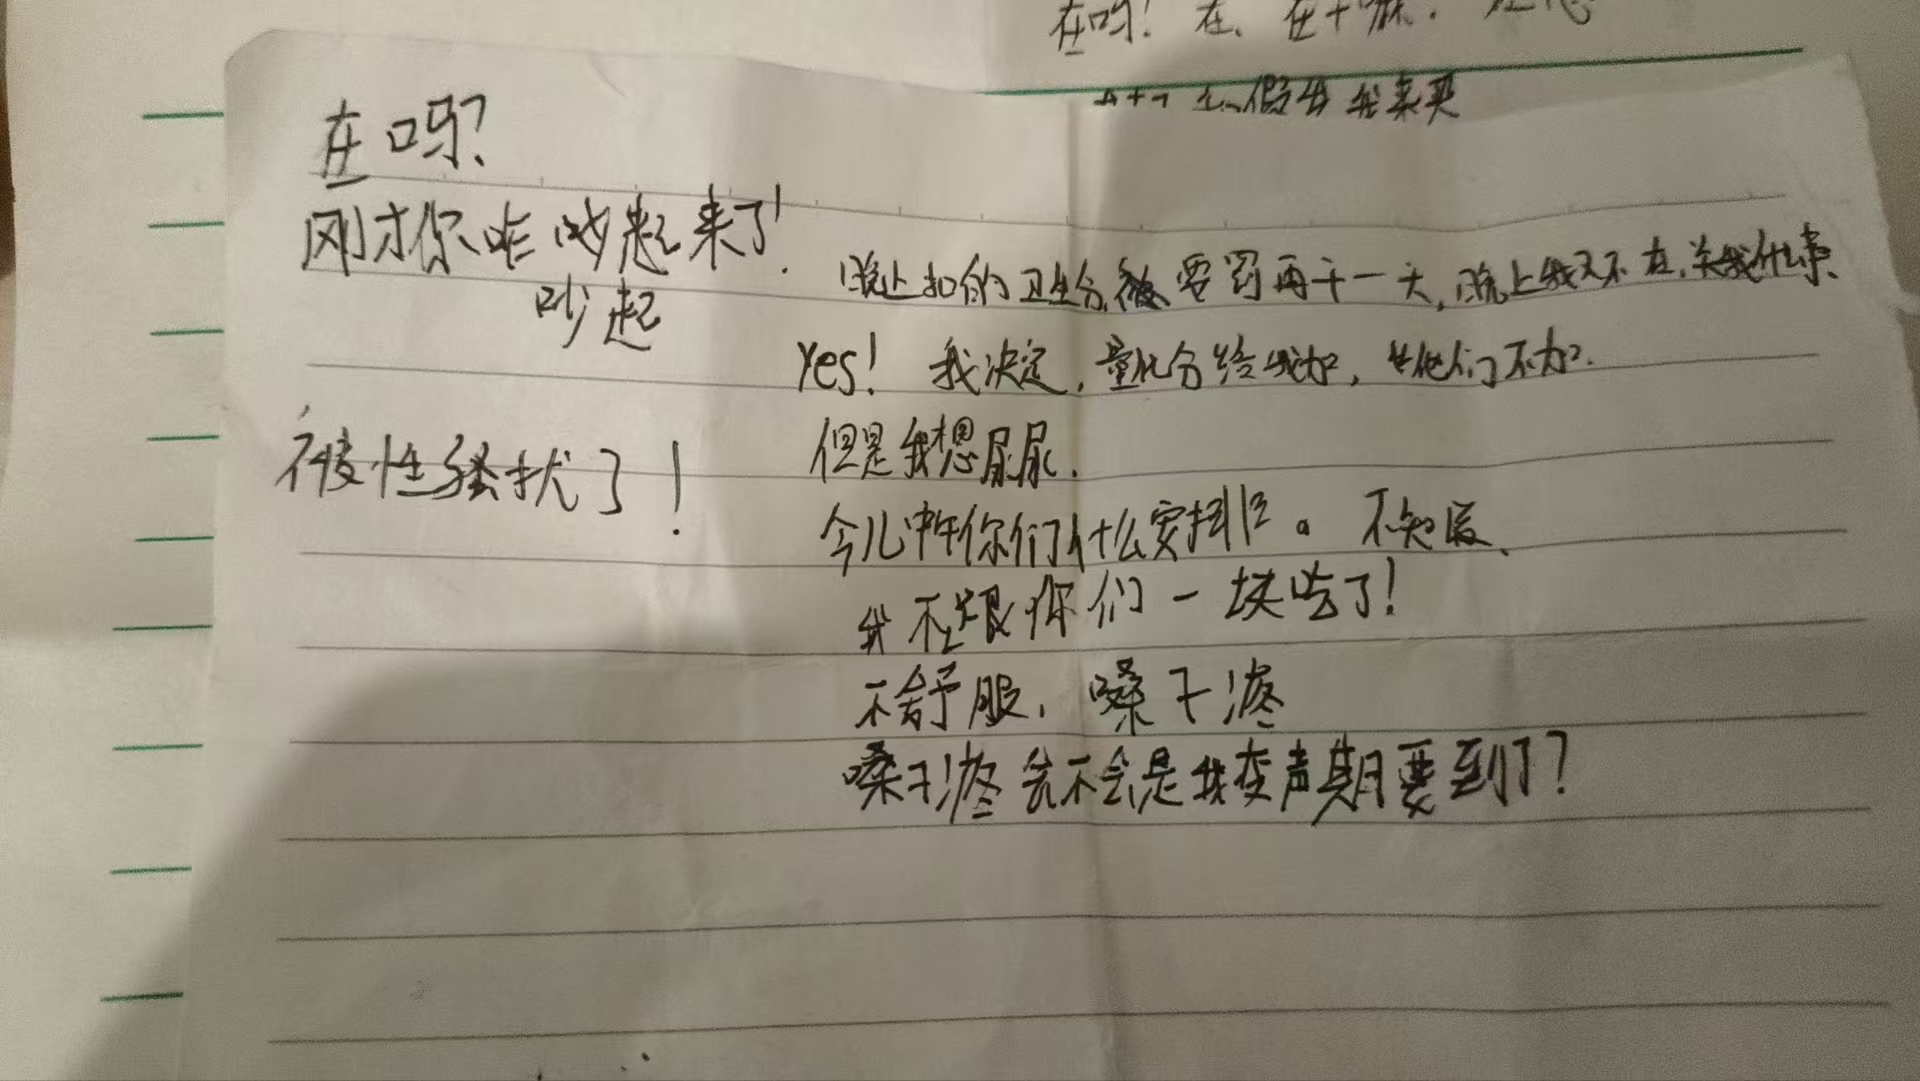 在吗！在、在干嘛
假发我来买
在吗？
刚才你咋吵起来了！
吵起
被性骚扰了！
晚上扣的卫生分，要罚再干一天，晚上我又不在，关我什么事、
Yes！ 我决定，量化分给我加，其他们不加．
但是我想尿尿．
今儿中午你们什么安排。 不知道、
我不跟你们一块吃了！
不舒服，嗓子疼
嗓子疼不会是我变声期要到了？